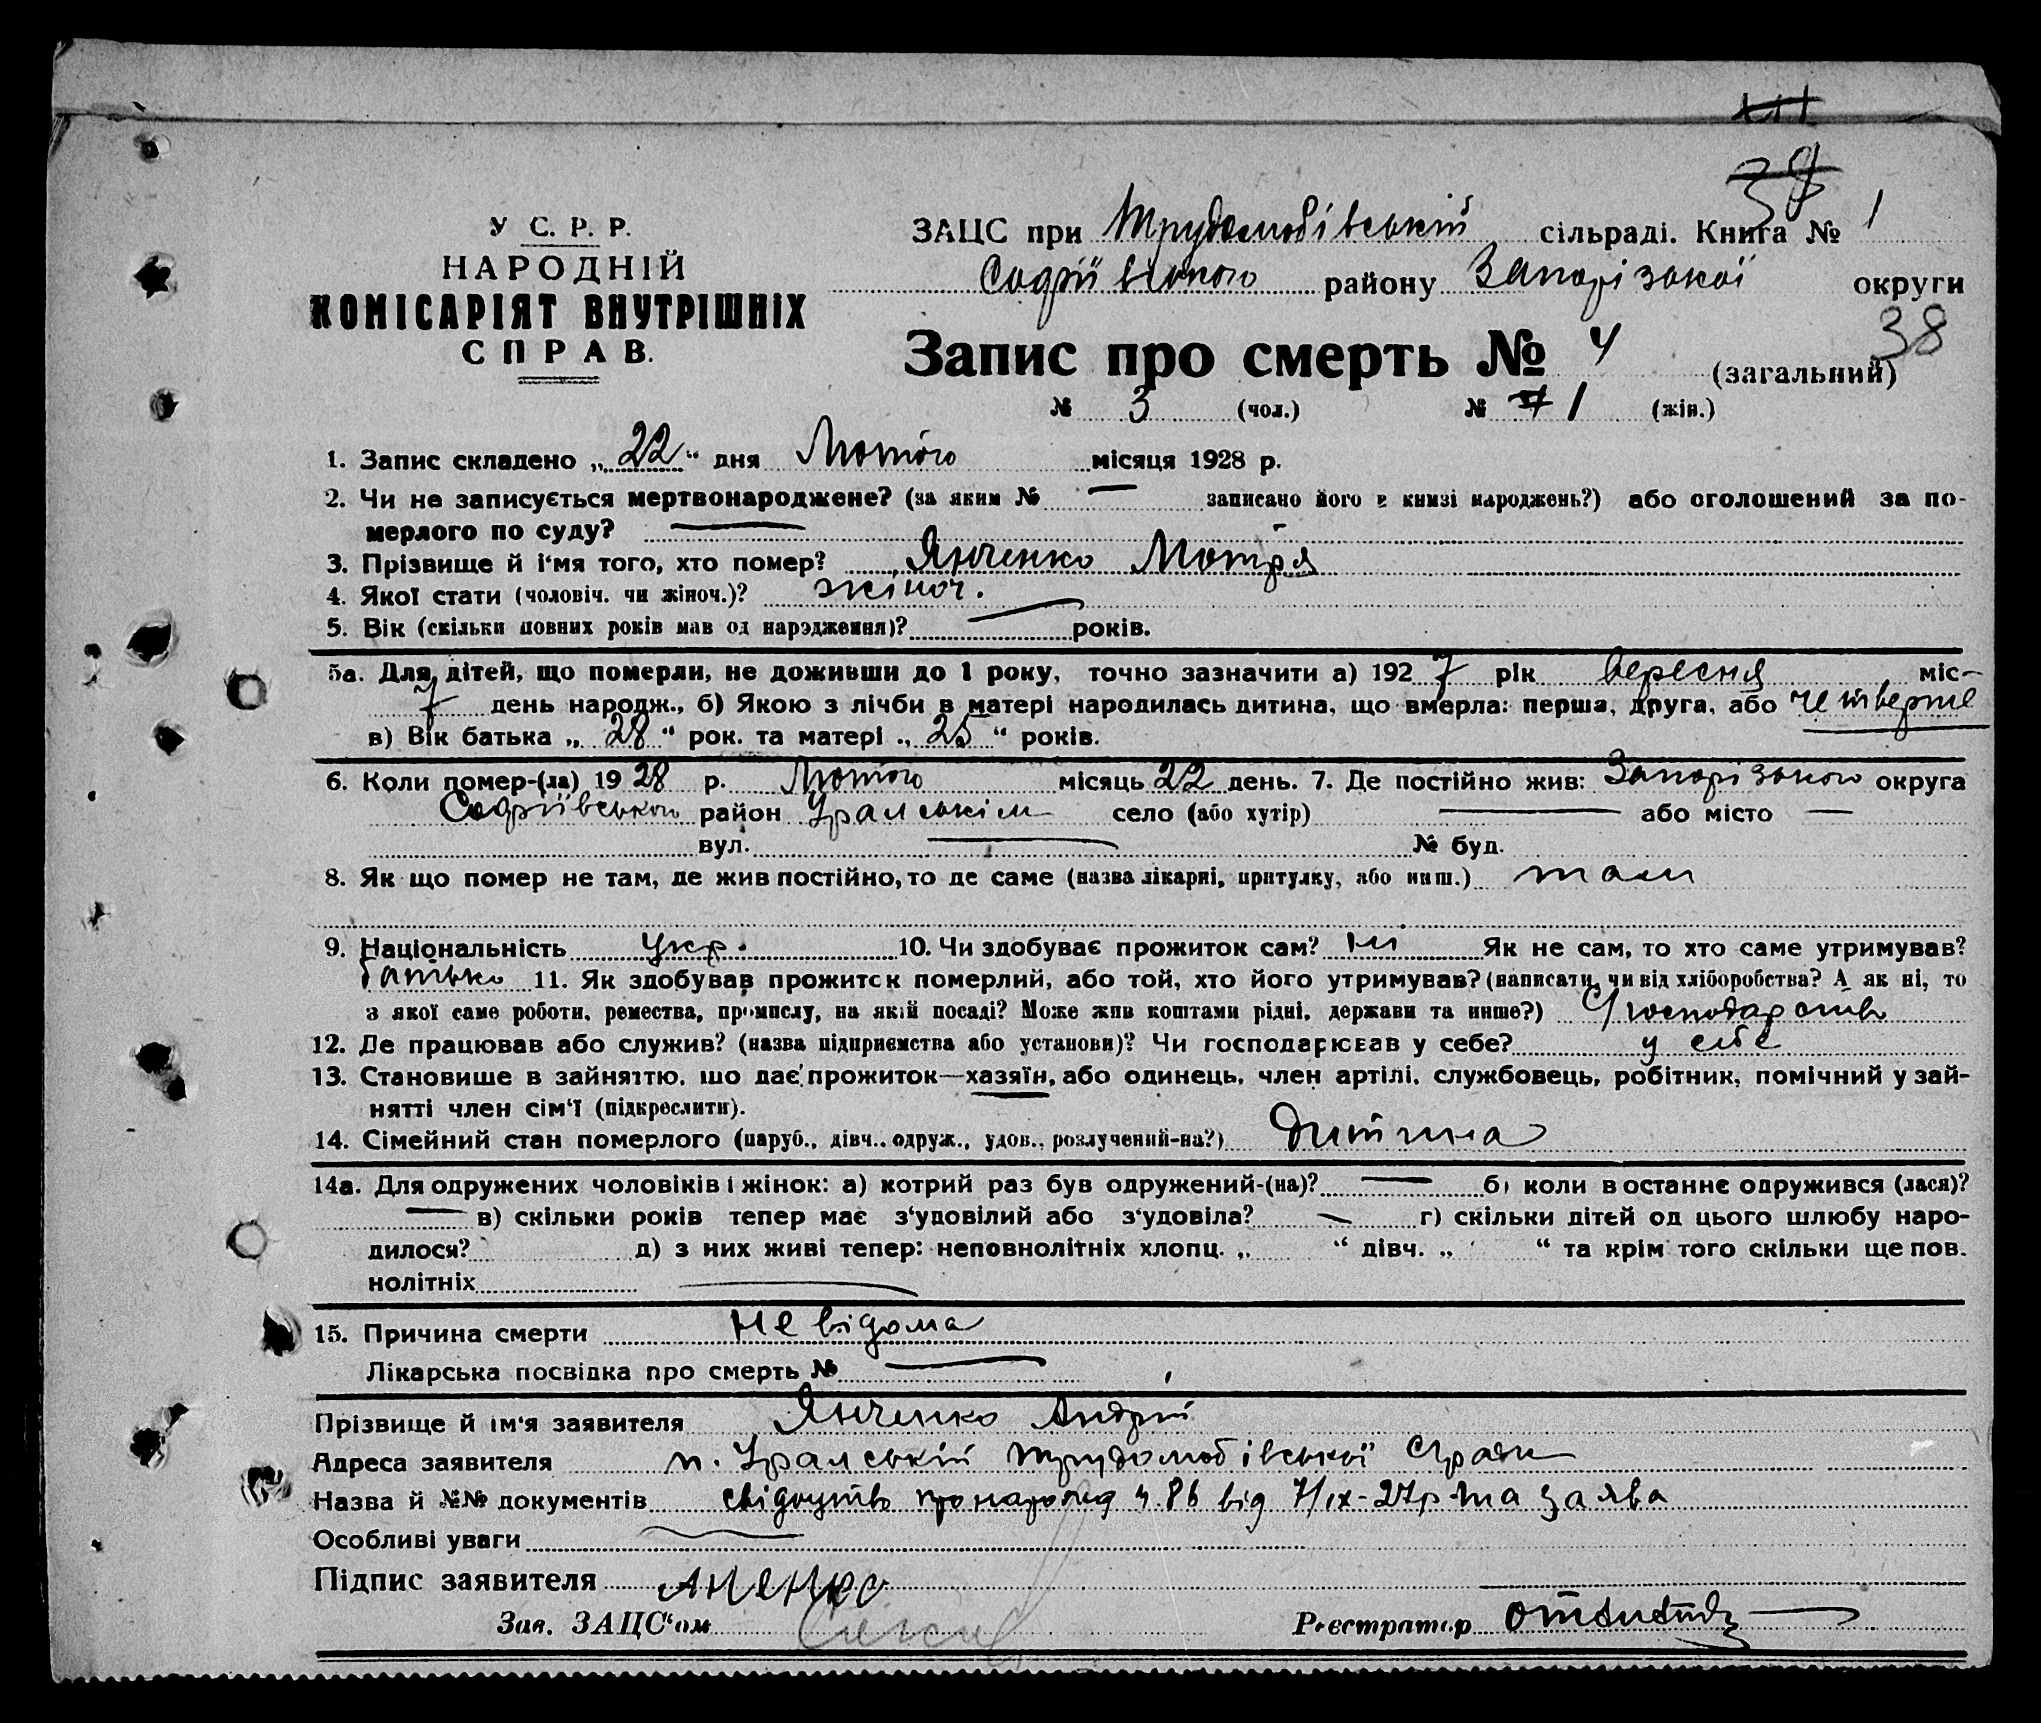 38
У С. Р. Р.
НАРОДНІЙ
КОМІСАРІЯТ ВНУТРІШНІХ
СПРАВ.
ЗАЦС при Трудолюбівській сільраді. Книга № 1
Софіївського району Запорізької округи
38
Запис про смерть № 4 (загальний)
№ 3 (чол.) № 1 (жін.)
1. Запис складено „22“ дня Лютого місяця 1928 р.
2. Чи не записується мертвонароджене? (за яким № — записано його в книзі народжень?) або оголошений за по-
мерлого по суду? —
3. Прізвище й і'мя того, хто помер? Янченко Мотря
4. Якої стати (чоловіч. чи жіноч.)? жіноч.
5. Вік (скільки повних років мав од народження)? — років.
5а. Для дітей, що померли, не доживши до 1 року, точно зазначити а) 1927 рік вересня міс-
7 день народж., б) Якою з лічби в матері народилась дитина, що вмерла: перша, друга, або четверте
в) Вік батька „28“ рок. та матері „25“ років.
6. Коли помер-(ла) 1928 р. Лютого місяць 22 день. 7. Де постійно жив: Запорізького округа
Софіївського район Уральскім село (або хутір) — або місто —
вул. — № буд.
8. Як що помер не там, де жив постійно, то де саме (назва лікарні, притулку, або инш.) там
9. Національність укр. 10. Чи здобуває прожиток сам? ні Як не сам, то хто саме утримував?
батько 11. Як здобував прожиток померлий, або той, хто його утримував? (написати, чи від хліборобства? А як ні, то
з якої саме роботи, ремества, промислу, на якій посаді? Може жив коштами рідні, держави та инше?) С/господарство
12. Де працював або служив? (назва підприємства або установи)? Чи господарював у себе? у себе
13. Становище в зайняттю, що дає прожиток—хазяїн, або одинець, член артілі, службовець, робітник, помічний у зай-
нятті член сім'ї (підкреслити).
14. Сімейний стан померлого (паруб., дівч., одруж., удов., розлучений-на?) дитина
14а. Для одружених чоловіків і жінок: а) котрий раз був одружений-(на)? — б) коли востаннє одружився (лася)?
— в) скільки років тепер має з'удовілий або з'удовіла? — г) скільки дітей од цього шлюбу наро-
дилося? д) з них живі тепер: неповнолітніх хлопц. „ “ дівч. „ “ та крім того скільки ще пов.
нолітніх —
15. Причина смерти невідома
Лікарська посвідка про смерть № —
Прізвище й ім'я заявителя Янченко Андрій
Адреса заявителя п. Уральскій Трудолюбівської С/ради
Назва й №№ документів свідоцтво про народ ч. 86 від 7/ІХ-27р та заява
Особливі уваги —
Підпис заявителя
Зав. ЗАЦС'ом
Реєстратор